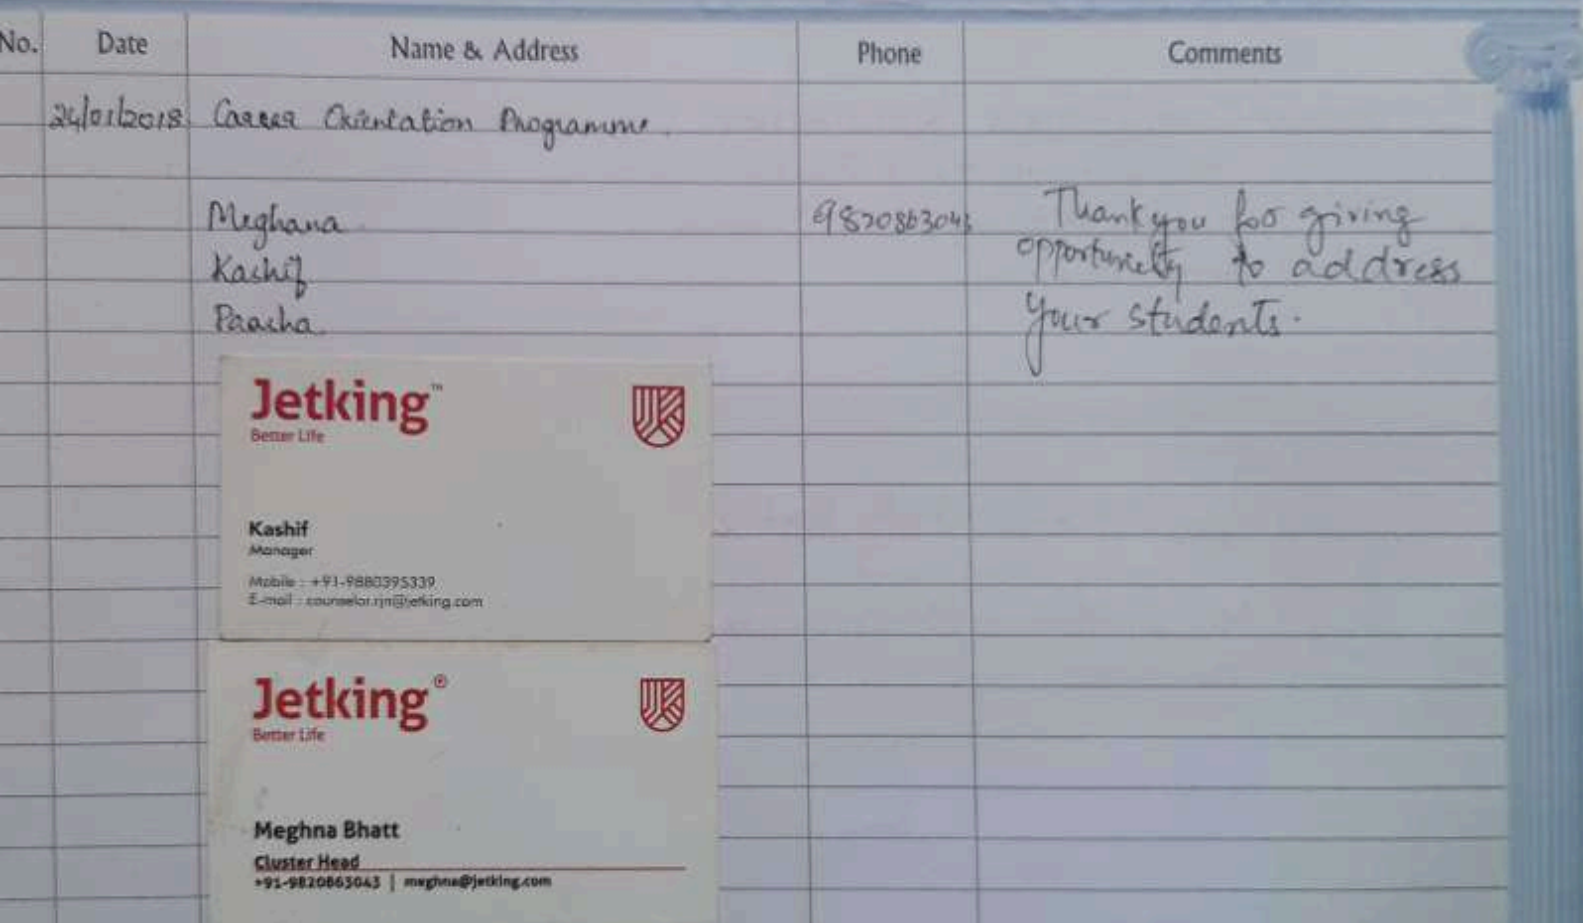 No. Date Name & Address Phone Comments
24/01/2018 Career Orientation Programme.
Meghana 9820863043 Thank you for giving
Kashif opportunity to address
Paasha your students.
Jetking™
Better Life
Kashif
Manager
Mobile : +91-9880395339
E-mail : counselor.rjn@jetking.com
Jetking®
Better Life
Meghna Bhatt
Cluster Head
+91-9820863043 | meghna@jetking.com